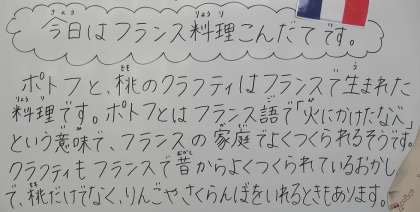 今日はフランス料理こんだてです。
ポトフと、桃のクラフティはフランスで生まれた
料理です。ポトフとはフランス語で「火にかけたなべ」
という意味で、フランスの家庭でよくつくられるそうです。
クラフティもフランスで昔からよくつくられているおかし
で、桃だけでなく、りんごやさくらんぼをいれるときもあります。